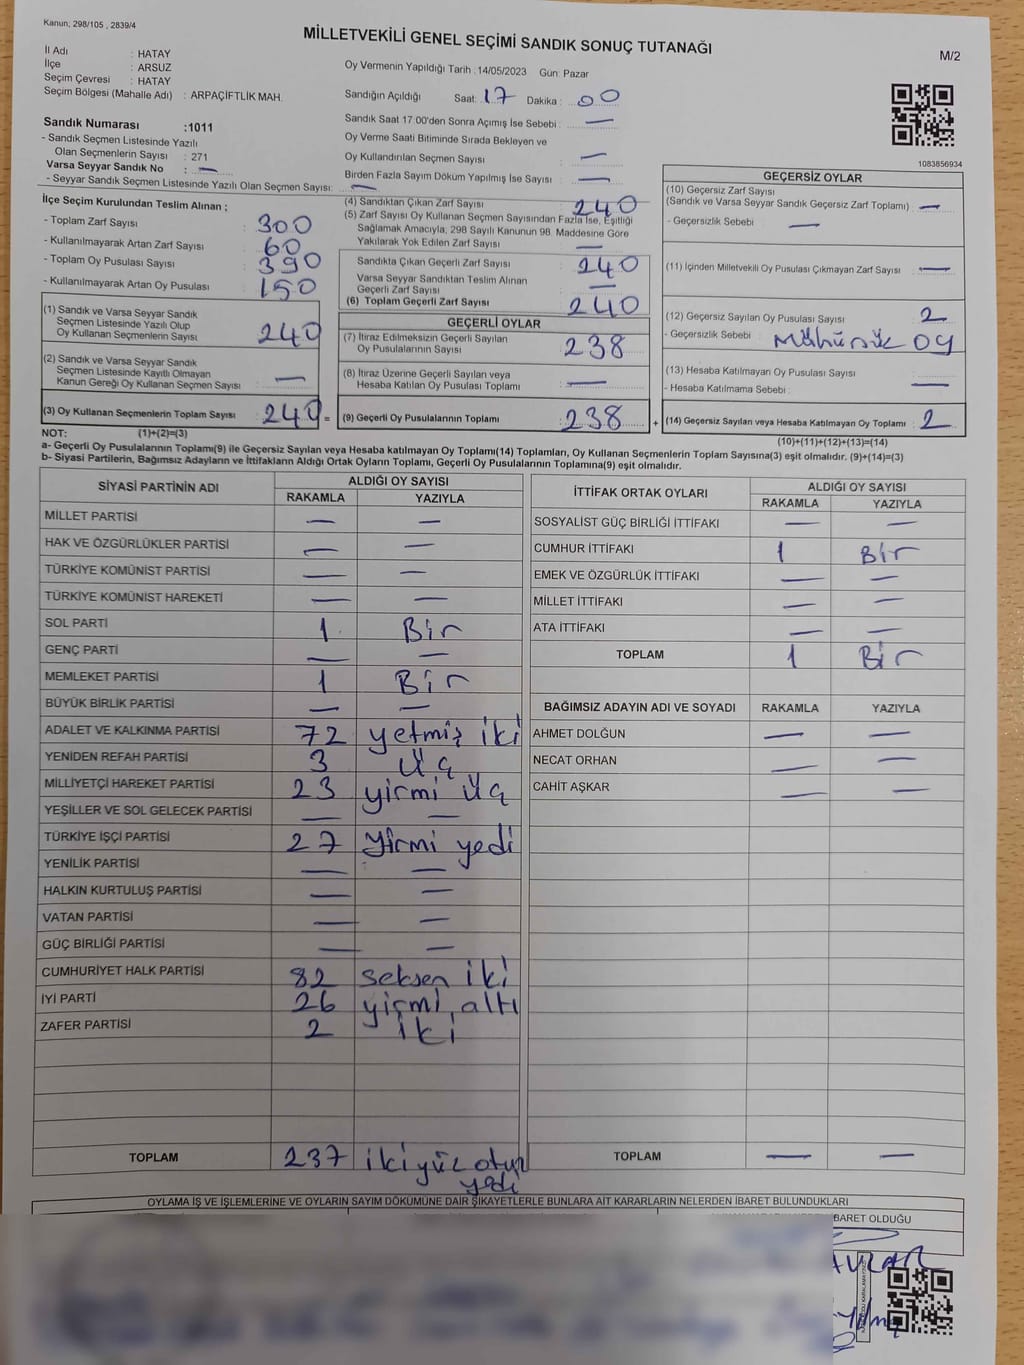 Kanun; 298/105 , 2839/4
MİLLETVEKİLİ GENEL SEÇİMİ SANDIK SONUÇ TUTANAĞI
M/2
İl Adı : HATAY
İlçe : ARSUZ
Seçim Çevresi : HATAY
Seçim Bölgesi (Mahalle Adı) : ARPAÇİFTLİK MAH.
Oy Vermenin Yapıldığı Tarih : 14/05/2023 Gün: Pazar
Sandığın Açıldığı Saat: 17 Dakika : 00
Sandık Saat 17:00'den Sonra Açımış İse Sebebi : —
Oy Verme Saati Bitiminde Sırada Bekleyen ve
Oy Kullandırılan Seçmen Sayısı —
Birden Fazla Sayım Döküm Yapılmış İse Sayısı —
Sandık Numarası :1011
- Sandık Seçmen Listesinde Yazılı
Olan Seçmenlerin Sayısı : 271
Varsa Seyyar Sandık No : —
- Seyyar Sandık Seçmen Listesinde Yazılı Olan Seçmen Sayısı: —
1083856934
İlçe Seçim Kurulundan Teslim Alınan ;
- Toplam Zarf Sayısı : 300
- Kullanılmayarak Artan Zarf Sayısı : 60
- Toplam Oy Pusulası Sayısı : 390
- Kullanılmayarak Artan Oy Pusulası : 150
(1) Sandık ve Varsa Seyyar Sandık
Seçmen Listesinde Yazılı Olup
Oy Kullanan Seçmenlerin Sayısı : 240
(2) Sandık ve Varsa Seyyar Sandık
Seçmen Listesinde Kayıtlı Olmayan
Kanun Gereği Oy Kullanan Seçmen Sayısı : —
(3) Oy Kullanan Seçmenlerin Toplam Sayısı : 240 =
(4) Sandıktan Çıkan Zarf Sayısı : 240
(5) Zarf Sayısı Oy Kullanan Seçmen Sayısından Fazla İse, Eşitliği
Sağlamak Amacıyla, 298 Sayılı Kanunun 98. Maddesine Göre
Yakılarak Yok Edilen Zarf Sayısı : —
Sandıkta Çıkan Geçerli Zarf Sayısı : 240
Varsa Seyyar Sandıktan Teslim Alınan
Geçerli Zarf Sayısı : —
(6) Toplam Geçerli Zarf Sayısı : 240
GEÇERLİ OYLAR
(7) İtiraz Edilmeksizin Geçerli Sayılan
Oy Pusulalarının Sayısı : 238
(8) İtiraz Üzerine Geçerli Sayılan veya
Hesaba Katılan Oy Pusulası Toplamı : —
(9) Geçerli Oy Pusulalarının Toplamı : 238 +
GEÇERSİZ OYLAR
(10) Geçersiz Zarf Sayısı
(Sandık ve Varsa Seyyar Sandık Geçersiz Zarf Toplamı) : —
- Geçersizlik Sebebi : —
(11) İçinden Milletvekili Oy Pusulası Çıkmayan Zarf Sayısı : —
(12) Geçersiz Sayılan Oy Pusulası Sayısı : 2
- Geçersizlik Sebebi : Mühürsük oy
(13) Hesaba Katılmayan Oy Pusulası Sayısı : —
- Hesaba Katılmama Sebebi :
(14) Geçersiz Sayılan veya Hesaba Katılmayan Oy Toplamı : 2
NOT: (1)+(2)=(3)
(10)+(11)+(12)+(13)=(14)
a- Geçerli Oy Pusulalarının Toplamı(9) ile Geçersiz Sayılan veya Hesaba katılmayan Oy Toplamı(14) Toplamları, Oy Kullanan Seçmenlerin Toplam Sayısına(3) eşit olmalıdır. (9)+(14)=(3)
b- Siyasi Partilerin, Bağımsız Adayların ve İttifakların Aldığı Ortak Oyların Toplamı, Geçerli Oy Pusulalarının Toplamına(9) eşit olmalıdır.
SİYASİ PARTİNİN ADI ALDIĞI OY SAYISI
RAKAMLA YAZIYLA
MİLLET PARTİSİ — —
HAK VE ÖZGÜRLÜKLER PARTİSİ — —
TÜRKİYE KOMÜNİST PARTİSİ — —
TÜRKİYE KOMÜNİST HAREKETİ — —
SOL PARTİ 1 Bir
GENÇ PARTİ — —
MEMLEKET PARTİSİ 1 Bir
BÜYÜK BİRLİK PARTİSİ — —
ADALET VE KALKINMA PARTİSİ 72 yetmiş iki
YENİDEN REFAH PARTİSİ 3 Üç
MİLLİYETÇİ HAREKET PARTİSİ 23 yirmi üç
YEŞİLLER VE SOL GELECEK PARTİSİ — —
TÜRKİYE İŞÇİ PARTİSİ 27 yirmi yedi
YENİLİK PARTİSİ — —
HALKIN KURTULUŞ PARTİSİ — —
VATAN PARTİSİ — —
GÜÇ BİRLİĞİ PARTİSİ — —
CUMHURİYET HALK PARTİSİ 82 seksen iki
İYİ PARTİ 26 yirmi altı
ZAFER PARTİSİ 2 iki
TOPLAM 237 ikiyüz otuz
yedi
İTTİFAK ORTAK OYLARI ALDIĞI OY SAYISI
RAKAMLA YAZIYLA
SOSYALİST GÜÇ BİRLİĞİ İTTİFAKI — —
CUMHUR İTTİFAKI 1 Bir
EMEK VE ÖZGÜRLÜK İTTİFAKI — —
MİLLET İTTİFAKI — —
ATA İTTİFAKI — —
TOPLAM 1 Bir
BAĞIMSIZ ADAYIN ADI VE SOYADI RAKAMLA YAZIYLA
AHMET DOLĞUN — —
NECAT ORHAN — —
CAHİT AŞKAR — —
TOPLAM — —
OYLAMA İŞ VE İŞLEMLERİNE VE OYLARIN SAYIM DÖKÜMÜNE DAİR ŞİKAYETLERLE BUNLARA AİT KARARLARIN NELERDEN İBARET BULUNDUKLARI
BARET OLDUĞU